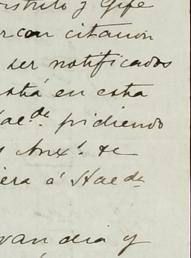 istrito y Gefe
r con citacion
ser notificados
está en esta
ae.da pidiendo
Anex.s de
iera á Hae.da
van dia y